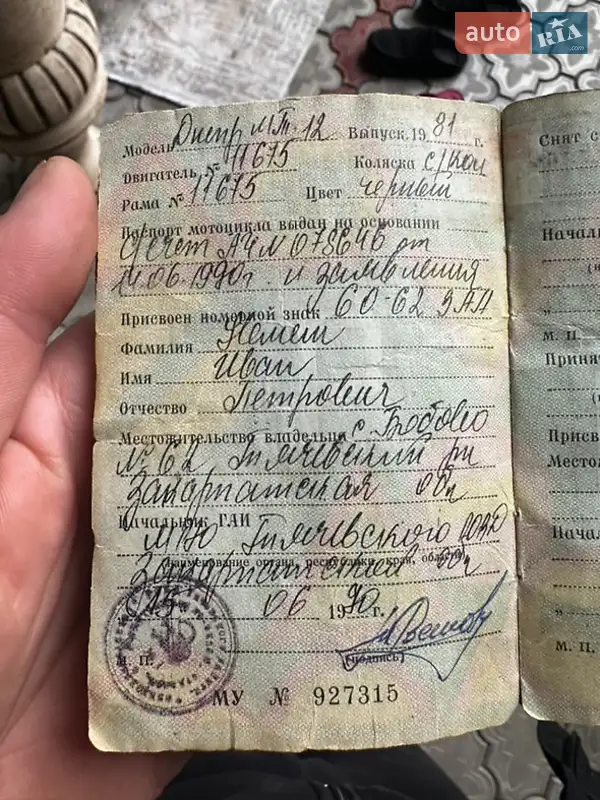 auto RIA.com
Модель Днепр МТ-12 Выпуск 1981 г.
Двигатель № 11675 Коляска с/кол
Рама № 11675 Цвет черный
Паспорт мотоцикла выдан на основании
счет АЧ № 078646 от
14.06.1990г. и заявления
Присвоен номерной знак 60-62 ЗАП
Фамилия Немеш
Имя Иван
Отчество Петрович
Местожительство владельца с. Бобово
№ 62 Тячевский рн
Закарпатская обл
Начальник ГАИ
МРЭО Тячевского РОВД
(наименование органа, республики, края, области)
Закарпатской обл
06 1990 г.
М. П. (подпись)
МУ № 927315
Снят с
Началь
М. П.
Принят
Присв
Местож
Начал
М. П.